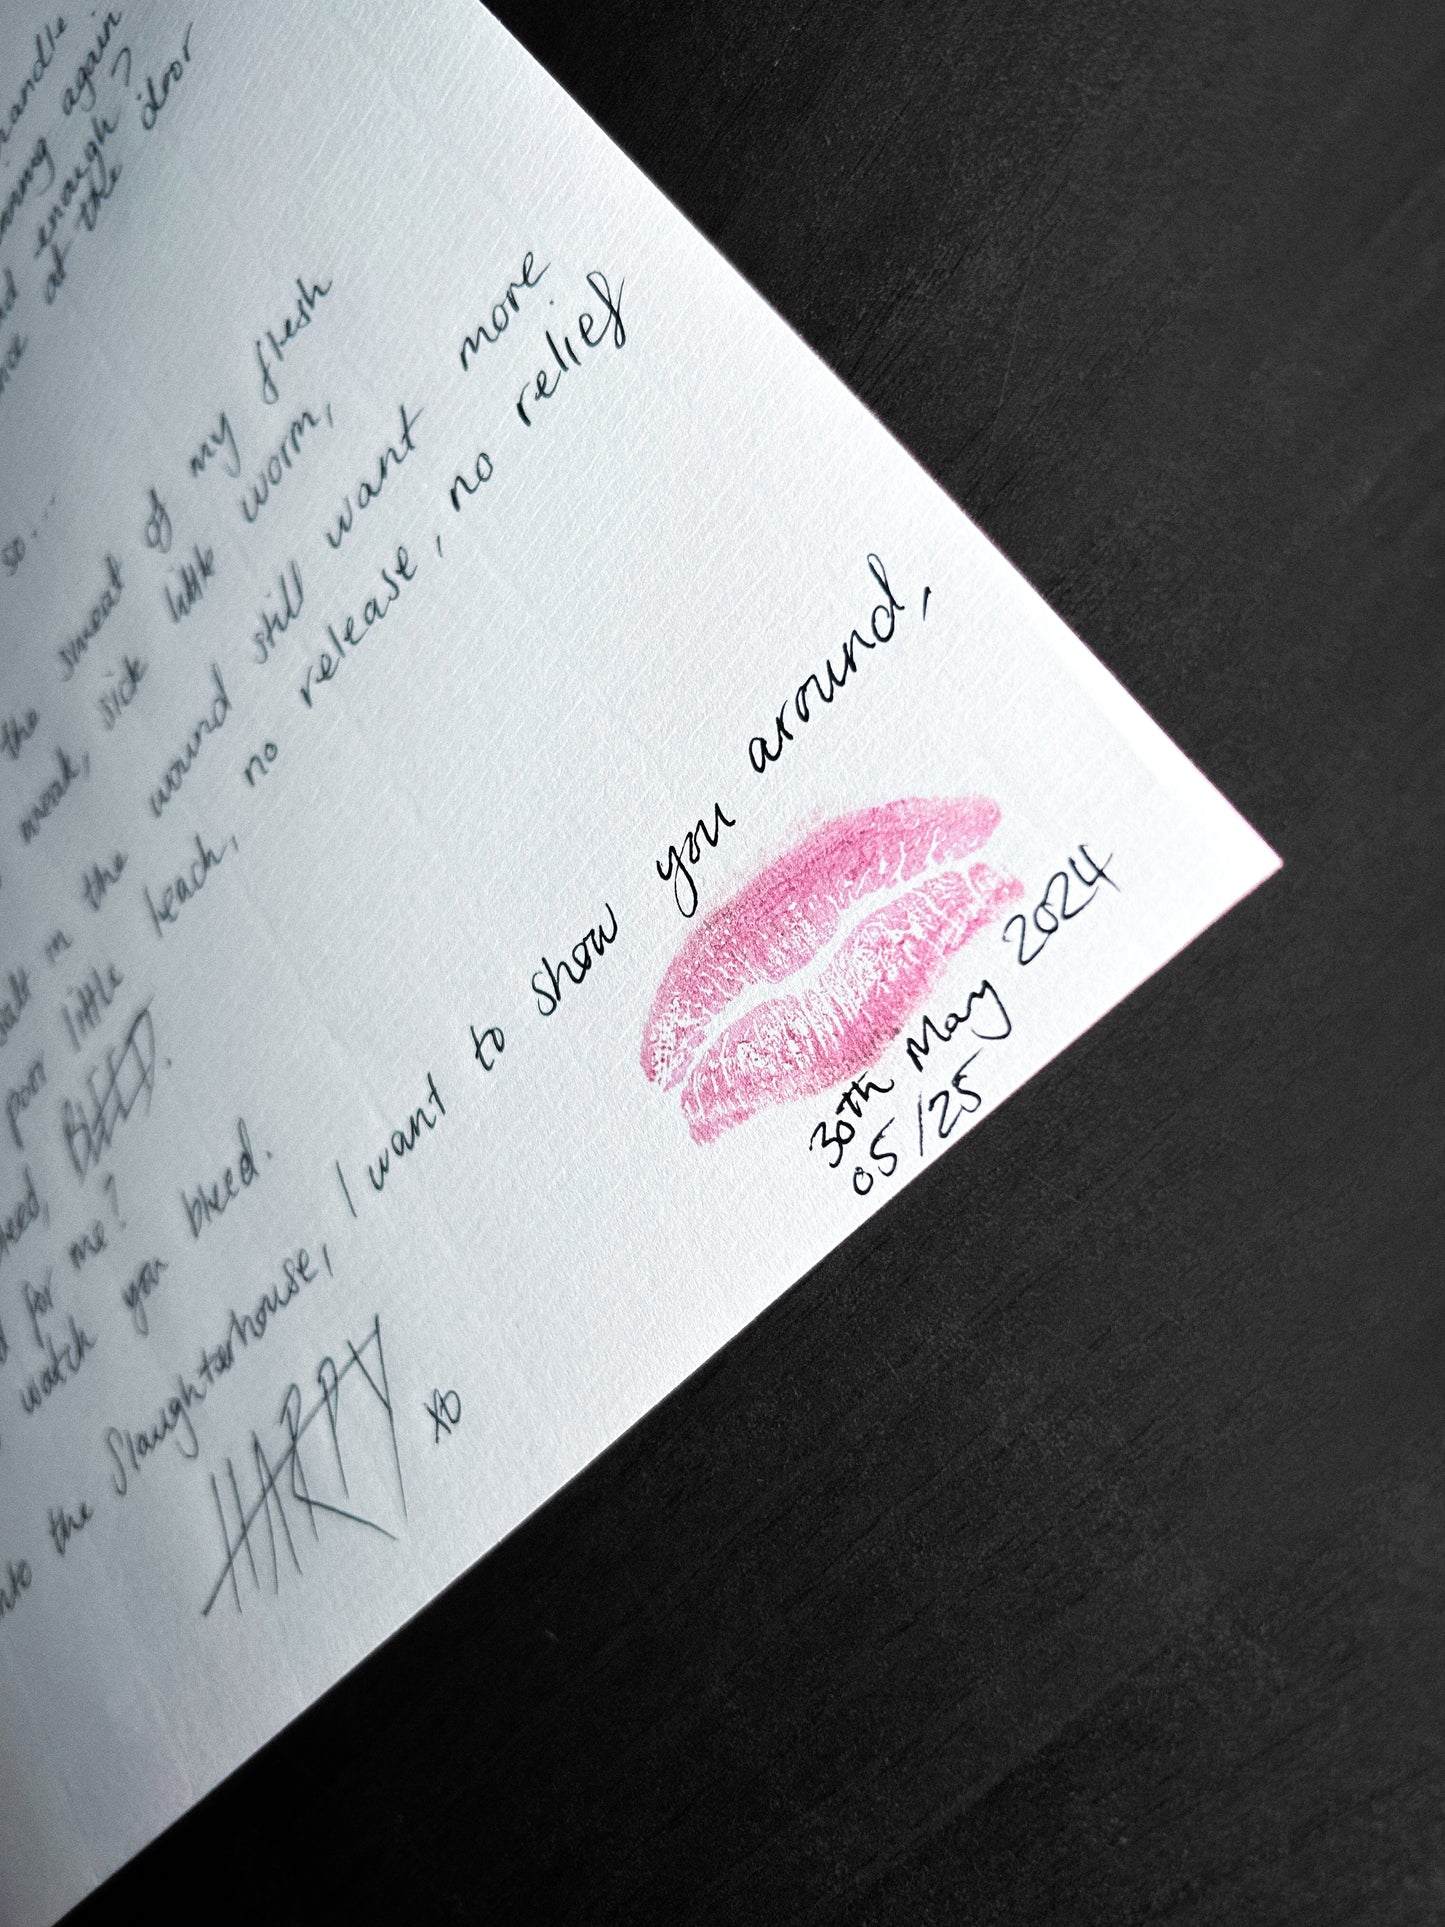 again
enough?
at the door
so...
the of my flesh
weak, sick little worm,
salt in the wound still want more
poor little leach, no release, no relief
BLEED.
for me?
watch you bleed.
into the Slaughterhouse, I want to show you around,
HARPY
xo
30th May 2024
05/25